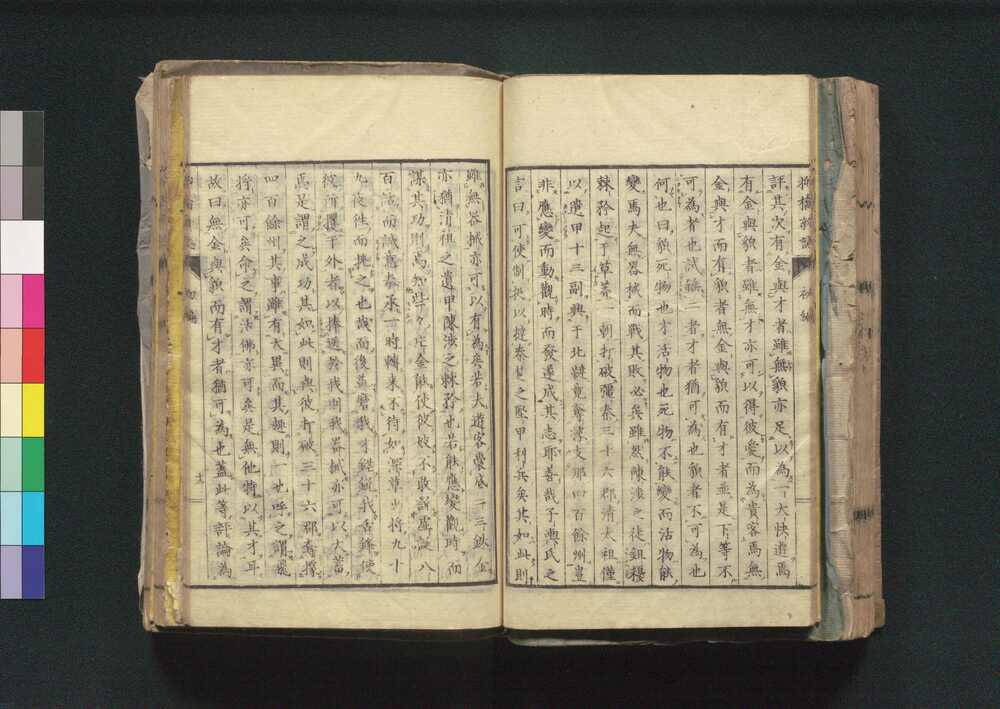 柳橋新誌 初編
評其次有金與才者雖無貌亦足以為一大快遊焉
有金與貌者雖無才亦可以得彼愛而為貴客焉無
金與才而有貌者無金與貌而有才者並是下等不
可為者也試論二者才者猶可為也貌者不可為也
何也曰貌死物也才活物也死物不能變而活物能
變焉夫無器械而戰其敗必矣雖然陳涉之徒鉏耰
棘矜起于草莽一朝打破彊秦三十六郡清太祖僅
以遺甲十三副興于北韃竟奪支那四百餘州豈
非應變而動觀時而發遂成其志耶善哉子輿氏之
言曰可使制梃以撻秦楚之堅甲利兵矣其如此則
雖無器械亦可以有為矣若夫遊客囊底一三鉄金
亦猶清祖之遺甲陳涉之棘矜也若能應變觀時而
謀其功則尚如些々定金能使彼妓不敢
百活而誠意奉承一時轉来不待如深草少将九十
九夜徃而挑之也誠而後
於外者以捧送於我則我器械亦可以大蓄
焉是謂之成功其如此則與彼打破三十六郡奪
四百餘州其事雖有大異而其趣則一也呼之謂鬼
将亦可矣命之謂活佛亦可矣是無他特以其才耳
故曰無金與貌而有才者猶可為也蓋此等評論為
初編
十